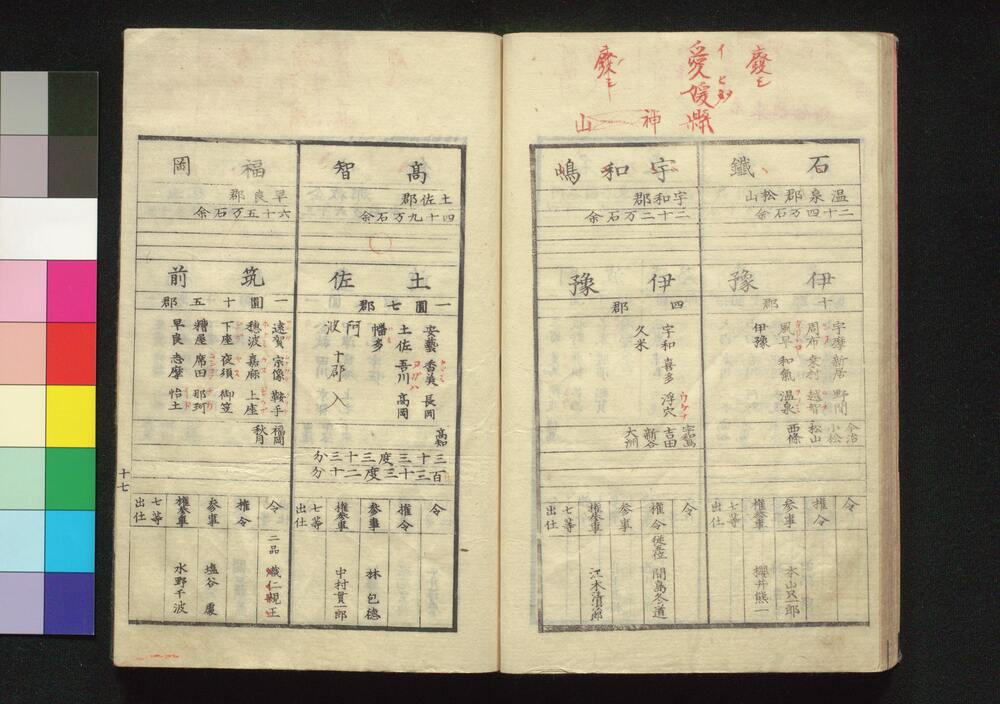 廢
愛媛縣
イヒヨタ
廢
神山
石鐵
温泉郡松山
二十四万石余
伊豫
十郡
宇摩 新居 野間
周布 桒村 越智
風早 和氣 温泉
伊豫
今治
小松
松山
西條
令
權令
参事 本山只一郎
權参事 櫻井熊一
七等出仕
宇和嶋
宇和郡
二十二万石余
伊豫
四郡
宇和 喜多 浮穴
久米
宇和島
吉田
新谷
大洲
令
權令 従六位 間島冬道
参事
權参事 江木
七等出仕
髙智
土佐郡
四十九万石余
土佐
一圓七郡
安藝 香美 長岡
土佐 吾川 高岡
幡多
阿波十郡入
高知
三十三度三十三分
百三十三度二十分
令
權令
参事 林 包徳
權参事 中村貫一郎
七等出仕
福岡
早良郡
六十五万石余
筑前
一圓十五郡
遠賀 宗像 鞍手
穂波 嘉麻 上座
下座 夜須 御笠
糟屋 席田 那珂
早良 志摩 怡土
福岡
秋月
令 二品 熾仁親王
權令
参事 塩谷 處
權参事 水野千波
七等出仕
十七